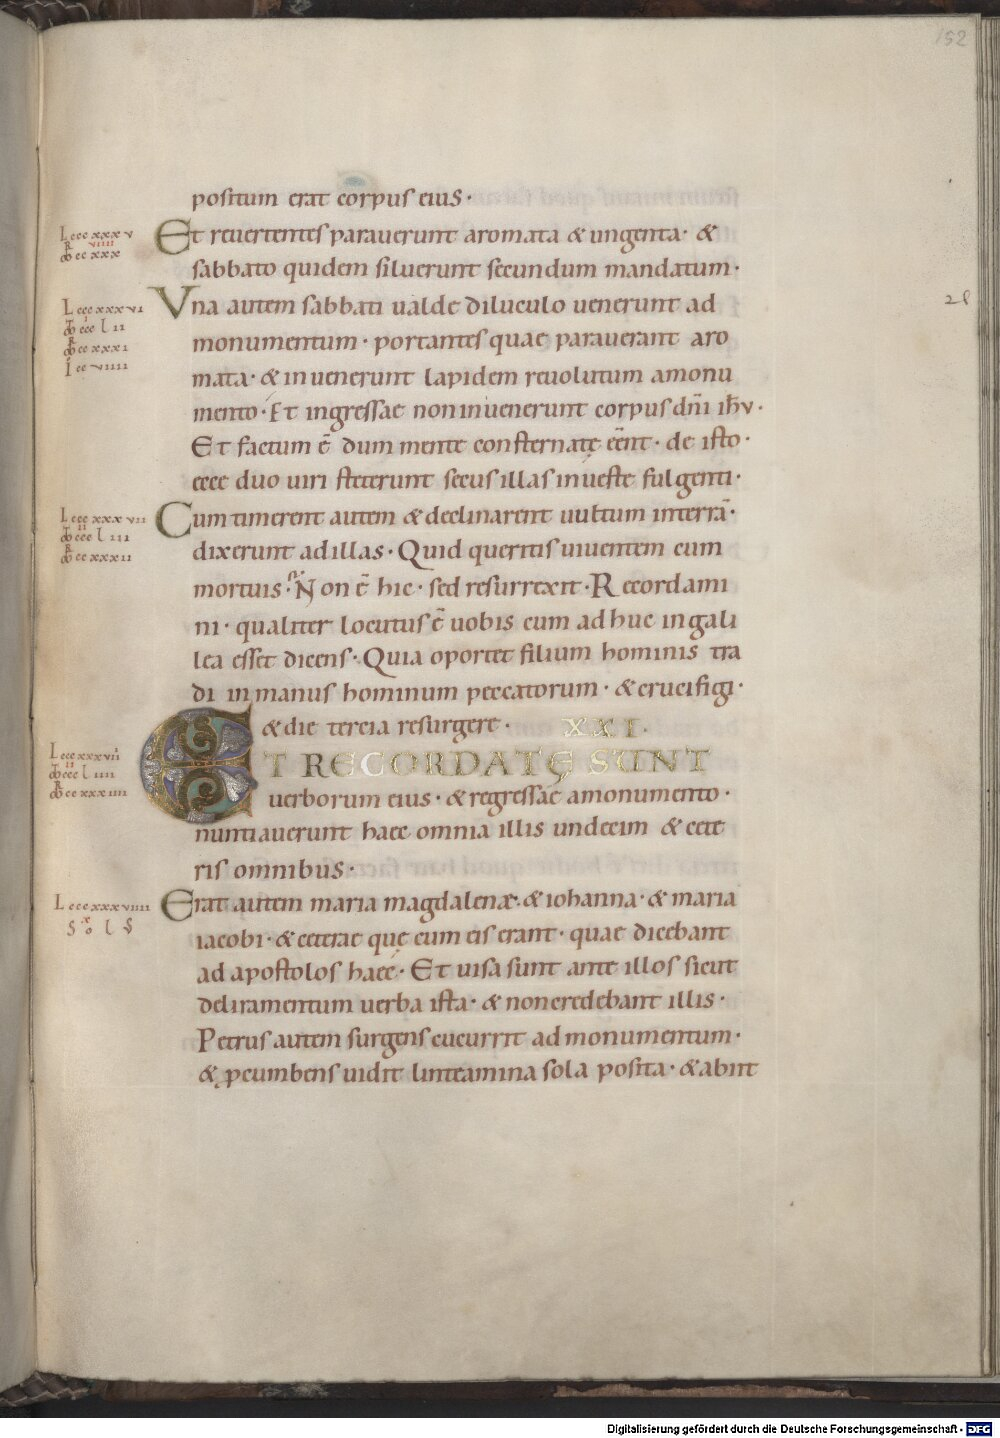 152
positum erat corpus eius·
L ccc xxx v
R viiii
ꝏ cc xxx
Et reuertentes parauerunt aromata & ungenta· &
sabbato quidem siluerunt secundum mandatum·
L ccc xxx vi
ꝏ ccc l ii
ꝏ cc xxx i
I cc viiii
Vna autem sabbati valde diluculo uenerunt ad
24
monumentum· portantes quae parauerant aro
mata· & inuenerunt lapidem reuolutum amonu
mento· Et ingressae noninuenerunt corpus dñi ihv·
Et factum ē dum mente consternatę eēnt· de isto·
ecce duo uiri steterunt secus illas inueste fulgenti·
L ccc xxx vii
ꝏ ccc l iii
ꝏ cc xxx ii
Cum timerent autem & declinarent uultum interrā·
dixerunt adillas· Quid queritis uiuentem cum
mortuis· Non ē hic· sed resurrexit· Recordami
ni· qualiter locutus ē uobis cum adhuc ingali
lea esset dicens· Quia oportet filium hominis tra
di inmanus hominum peccatorum· & crucifigi·
& die tercia resurgere· XXI·
L ccc xxx vii
ꝏ ccc l iiii
ꝏ cc xxx iiii
ET RECORDATĘ SUNT
uerborum eius· & regressae amonumento·
nuntiauerunt haec omnia illis undecim & cete
ris omnibus·
L ccc xxx viiii
Erat autem maria magdalenæ· & iohanna· & maria
iacobi· & ceterae quę cum eis erant· quae dicebant
ad apostolos haec· Et uisa sunt ante illos sicut
deliramentum uerba ista· & noncredebant illis·
Petrus autem surgens cucurrit ad monumentum·
& ꝓcumbens uidit linteamina sola posita· & abiit
Digitalisierung gefördert durch die Deutsche Forschungsgemeinschaft - DFG